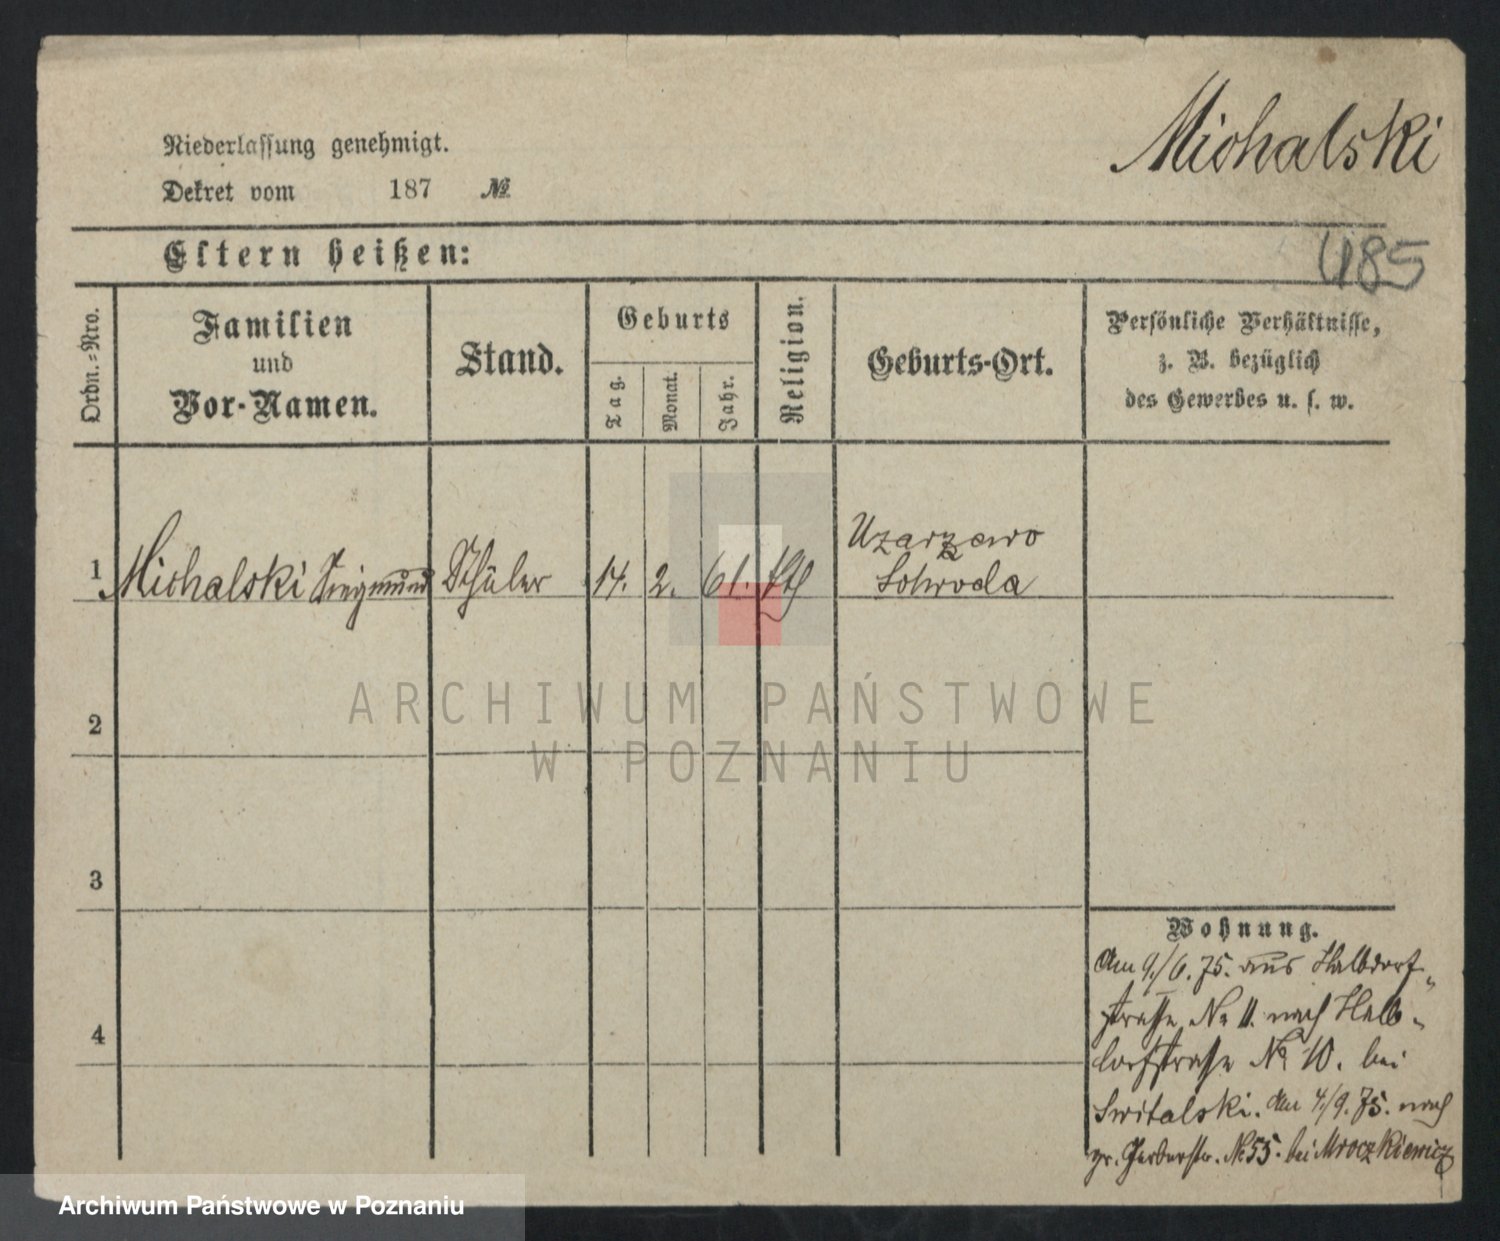 Michalski
Niederlassung genehmigt.
Dekret vom 187 №
485
Eltern heißen:
Ordn.=Nro.
Familien
und
Vor-Namen.
Stand.
Geburts
Tag.
Monat.
Jahr.
Religion.
Geburts-Ort.
Persönliche Verhältnisse,
z. B. bezüglich
des Gewerbes u. s. w.
1 Michalski Siegmund Schüler 14. 2. 61. kth Uzarzewo
Schroda
2
3
4
ARCHIWUM PAŃSTWOWE
W POZNANIU
Wohnung.
Am 9./6. 75. aus Halbdorf-
strasse № 11. nach Halb-
dorfstrasse № 10. bei
Switalski. Am 4./9. 75. nach
gr. Gerberstr. № 55. bei Mroczkiewicz
Archiwum Państwowe w Poznaniu